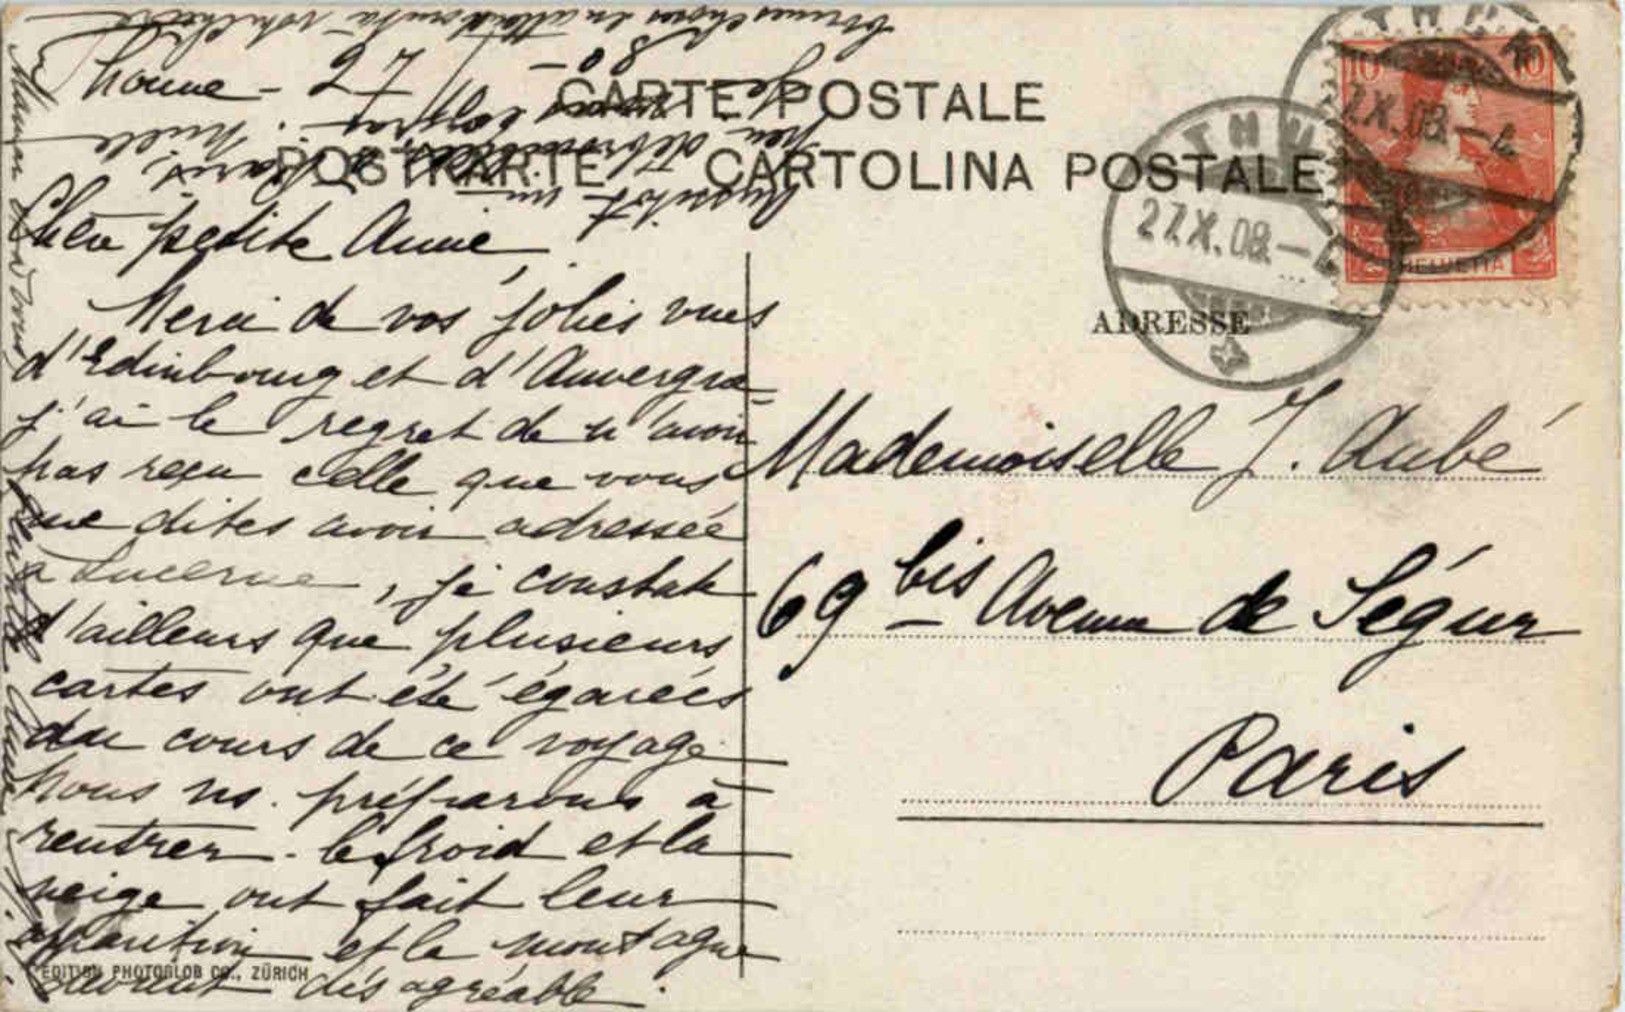 CARTE POSTALE
POSTKARTE CARTOLINA POSTALE
ADRESSE
THUN
27.X.08.-4
THUN
27.X.08.-4
10 10
HELVETIA
Thoune - 27 - 8º
Chère petite Amie,
Merci de vos jolies vues
d'Edinbourg et d'Auvergne
j'ai le regret de n'avoir
pas reçu celle que vous
me dites avoir adressée
à Lucerne, je constate
d'ailleurs que plusieurs
cartes ont été égarées
au cours de ce voyage
Nous ns. préparons à
rentrer - le froid et la
neige ont fait leur
apparition et la montagne
devient désagréable.
Aussitôt un
peu
bonnes choses en attendant
Maman
Mademoiselle J. Aubé
69 bis Avenue de Ségur
Paris
EDITION PHOTOGLOB CO., ZÜRICH